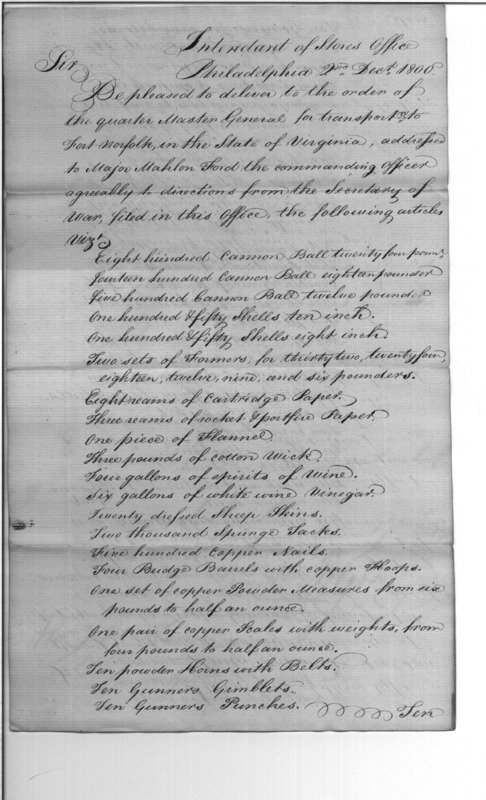 Intendant of Stores Office
Philadelphia 2nd Decr. 1800
Sir
Be pleased to deliver to the order of
the quarter Master General for transportn. to
Fort Norfolk, in the State of Virginia, addressed
to Major Mahlon Ford the commanding Officer
agreeably to directions from the Secretary of
War, filed in this Office, the following articles
Vizt.
Eight hundred Cannon Ball twenty four pounr.
Fourteen hundred Cannon Ball eighteen pounder
Five hundred Cannon Ball twelve pounder
One hundred & fifty Shells ten inch.
One hundred & fifty Shells eight inch.
Two sets of Formers, for thirty two, twenty four,
eighteen, twelve, nine, and six pounders.
Eight reams of Cartridge Paper.
Three reams of rocket & portfire Paper.
One piece of Flannel
Three pounds of cotton Wick.
Four gallons of spirits of Wine.
Six gallons of white wine Vinegar.
Twenty dressed Sheep Skins.
Two thousand Spunge Tacks.
Five hundred Copper Nails.
Four Budge Barrels with copper Hoops.
One set of copper Powder Measures from six
pounds to half an ounce.
One pair of copper Scales with weights, from
four pounds to half an ounce.
Ten powder Horns with Belts.
Ten Gunners Gimblets.
Ten Gunners Punches. Ten